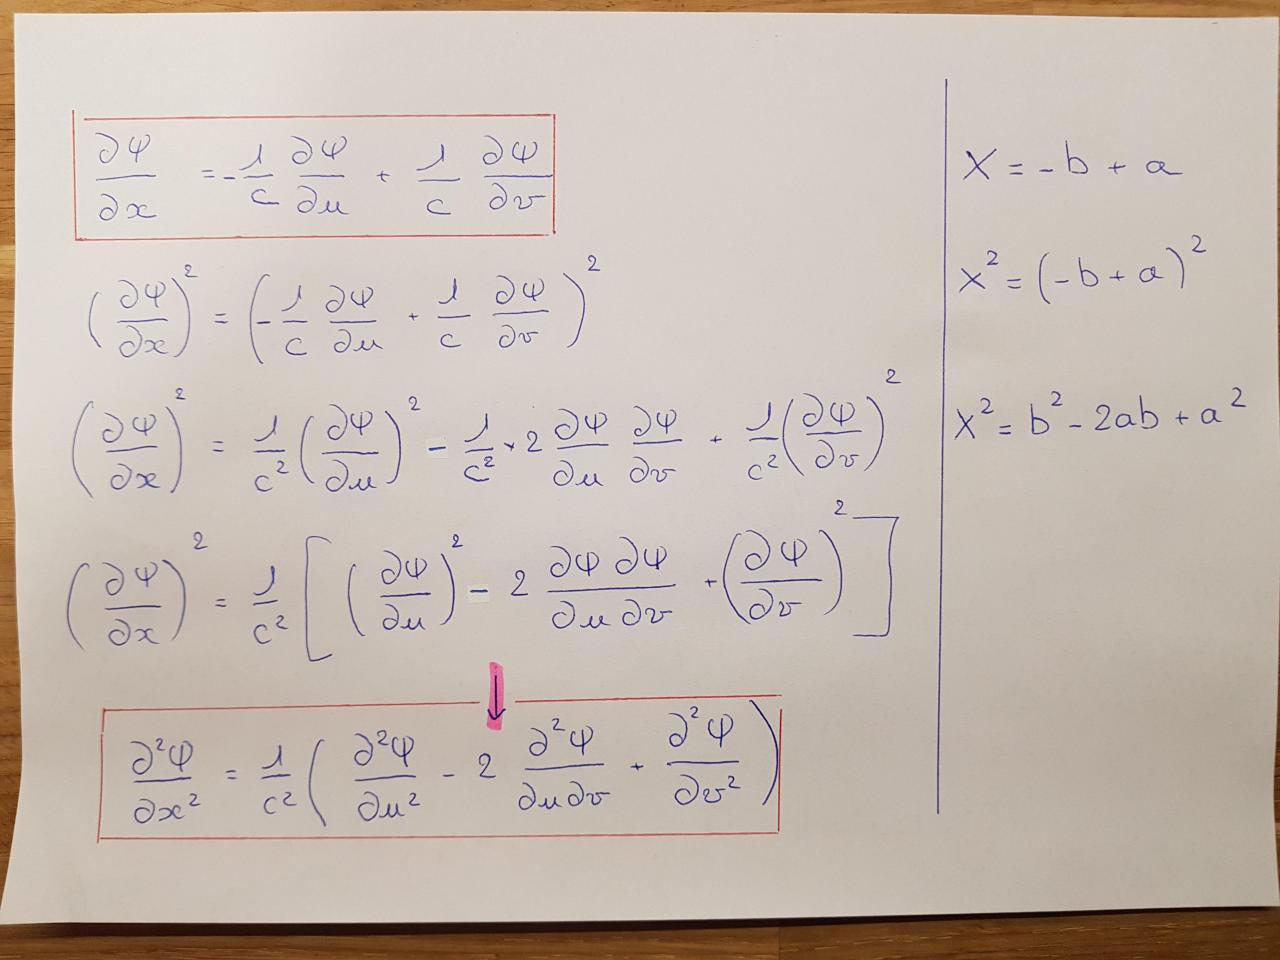 ∂ψ/∂x = -1/c ∂ψ/∂u + 1/c ∂ψ/∂v
(∂ψ/∂x)² = (-1/c ∂ψ/∂u + 1/c ∂ψ/∂v)²
(∂ψ/∂x)² = 1/c² (∂ψ/∂u)² - 1/c² × 2 ∂ψ/∂u ∂ψ/∂v + 1/c² (∂ψ/∂v)²
(∂ψ/∂x)² = 1/c² [(∂ψ/∂u)² - 2 ∂ψ ∂ψ/∂u ∂v + (∂ψ/∂v)²]
↓
∂²ψ/∂x² = 1/c² (∂²ψ/∂u² - 2 ∂²ψ/∂u∂v + ∂²ψ/∂v²)
X = -b + a
X² = (-b + a)²
X² = b² - 2ab + a²